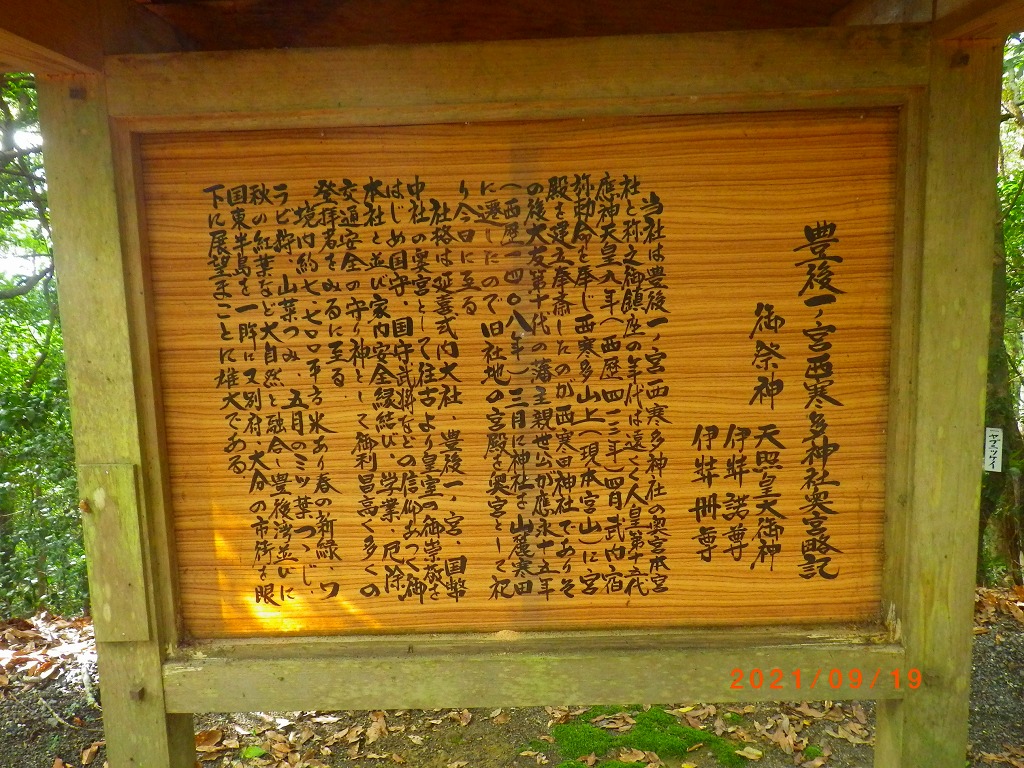 豊後一ノ宮西寒多神社奥宮略記
御祭神
天照皇大御神
伊弉諾尊
伊弉冊尊
当社は豊後一ノ宮西寒多神社の奥宮本宮
社と称え御鎮座の年代は遠く人皇第十五代
應神天皇九年(西歴四一三年)四月武内宿
祢勅命を奉じ西寒多山上(現本宮山)に宮
殿を建立奉斎したのが西寒田神社でありそ
の後大友第十代の藩主親世公が應永十五年
(西歴一四〇八年)三月に神社を山麓寒田
に遷したので旧社地の宮殿を奥宮として祀
り今日に至る
社格は延喜式内大社、豊後一ノ宮、国幣
中社の奥宮として往古より皇室の御崇敬を
はじめ国守、国守武将などの信仰あつく御
本社と並び家内安全縁結び、学業、厄除、
交通安全の守り神として御利昌高く多くの
登拝者をみるに至る
境内約七、七〇〇平方米あり春の新緑、ワ
ラビ狩、山菜つみ、五月のミツ葉つゝじ、
秋の紅葉など大自然と融合し豊後湾並びに
国東半島を一眸に又別府、大分の市街を眼
下に展望まことに雄大である
ヤブニッケイ
2021/09/19